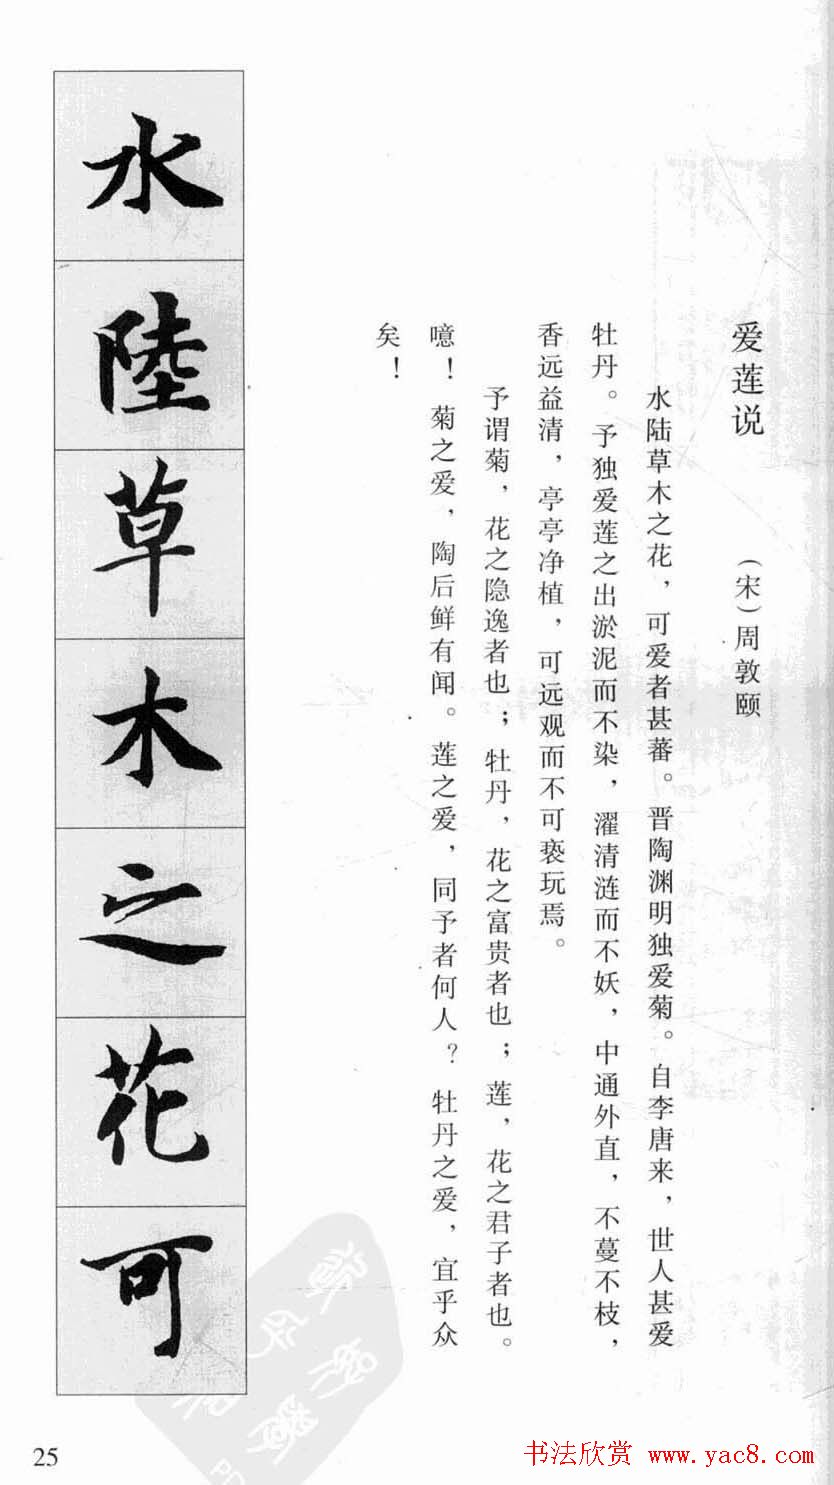 爱莲说 （宋）周敦颐
水陆草木之花，可爱者甚蕃。晋陶渊明独爱菊。自李唐来，世人甚爱
牡丹。予独爱莲之出淤泥而不染，濯清涟而不妖，中通外直，不蔓不枝，
香远益清，亭亭净植，可远观而不可亵玩焉。
予谓菊，花之隐逸者也；牡丹，花之富贵者也；莲，花之君子者也。
噫！菊之爱，陶后鲜有闻。莲之爱，同予者何人？牡丹之爱，宜乎众
矣！
水陸草木之花可
25
书法欣赏 www.yac8.com